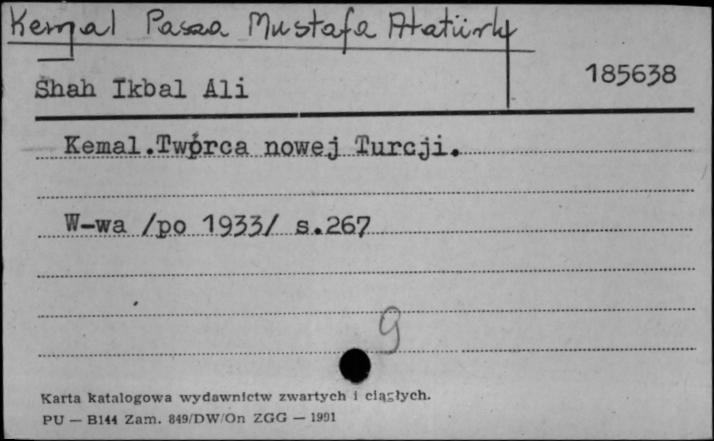 Kemal Pasza Mustafa Atatürk
185638
Shah Ikbal Ali
Kemal.Twórca nowej Turcji.
W-wa /po 1933/ s.267
9
Karta katalogowa wydawnictw zwartych i ciągłych.
PU — B144 Zam. 849/DW/On ZGG — 1991